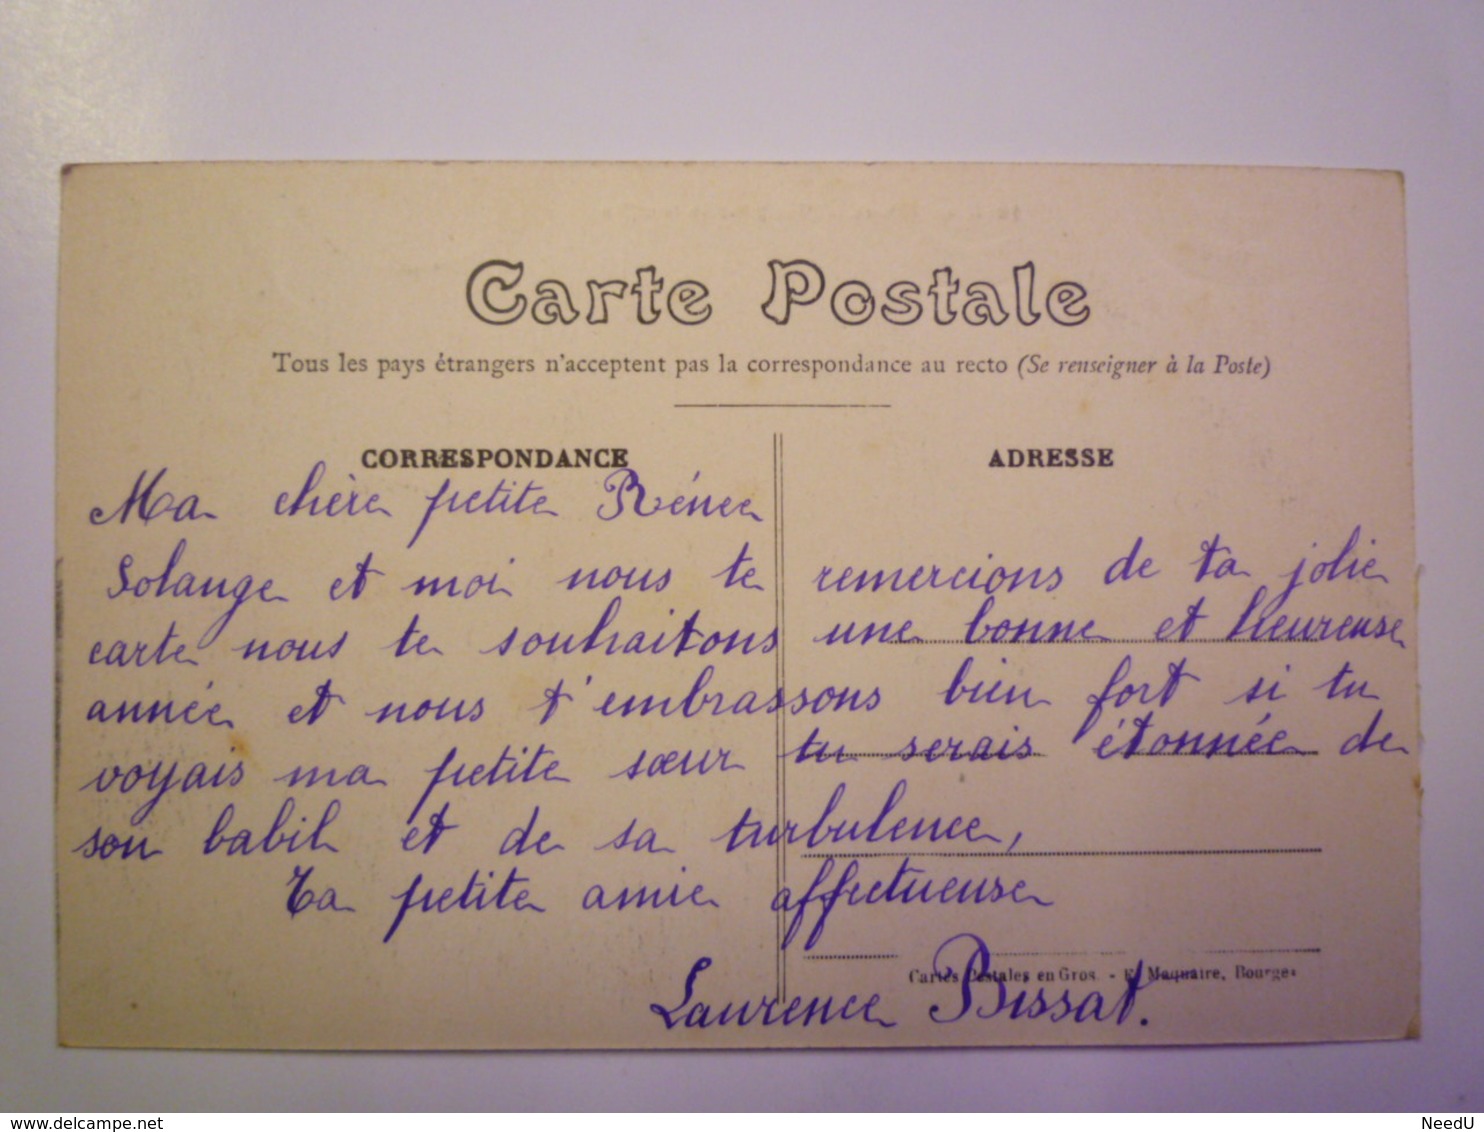 Carte Postale
Tous les pays étrangers n'acceptent pas la correspondance au recto (Se renseigner à la Poste)
CORRESPONDANCE
ADRESSE
Ma chère petite Rénée
Solange et moi nous te remercions de ta jolie
carte nous te souhaitons une bonne et heureuse
année et nous t'embrassons bien fort si tu
voyais ma petite sœur tu serais étonnée de
son babil et de sa turbulence,
Ta petite amie affectueuse
Cartes Postales en Gros. - E. Maquaire, Bourges
Laurence Bissat.
delcampe.net
NeedU